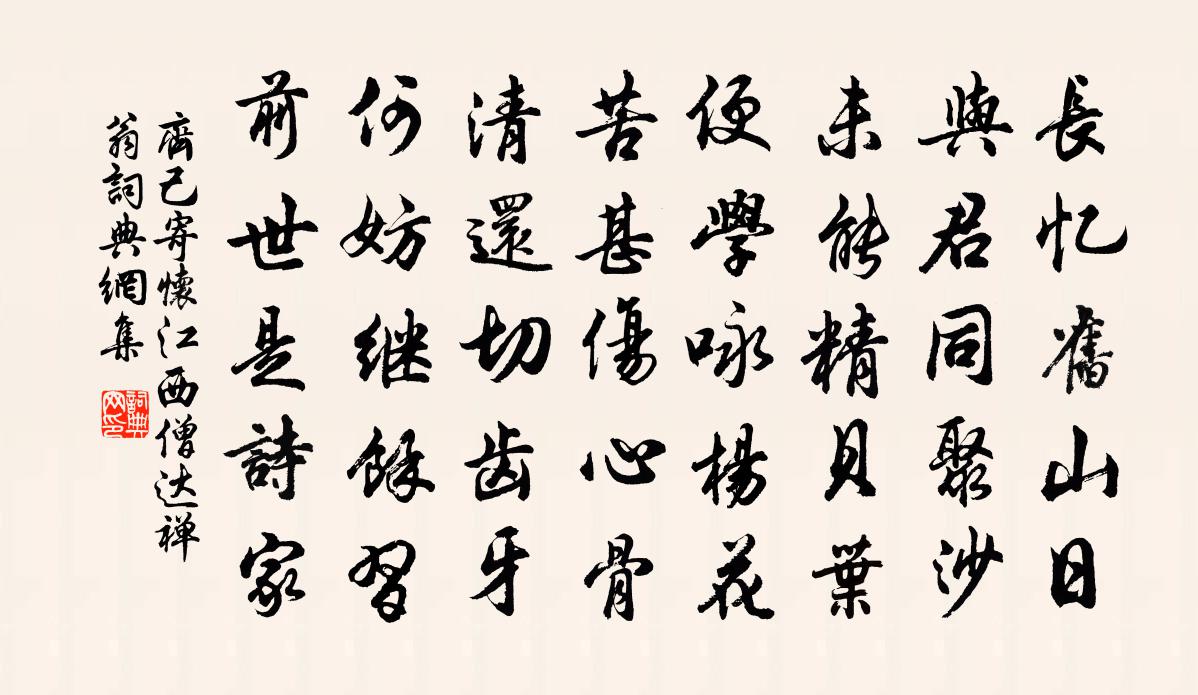 長忆舊山日
與君同聚沙
未能精貝葉
便學咏楊花
苦甚傷心骨
清還切齿牙
何妨継餘習
前世是詩家
齊己寄懷江西僧达禅
翁詞典網集
詞典网印